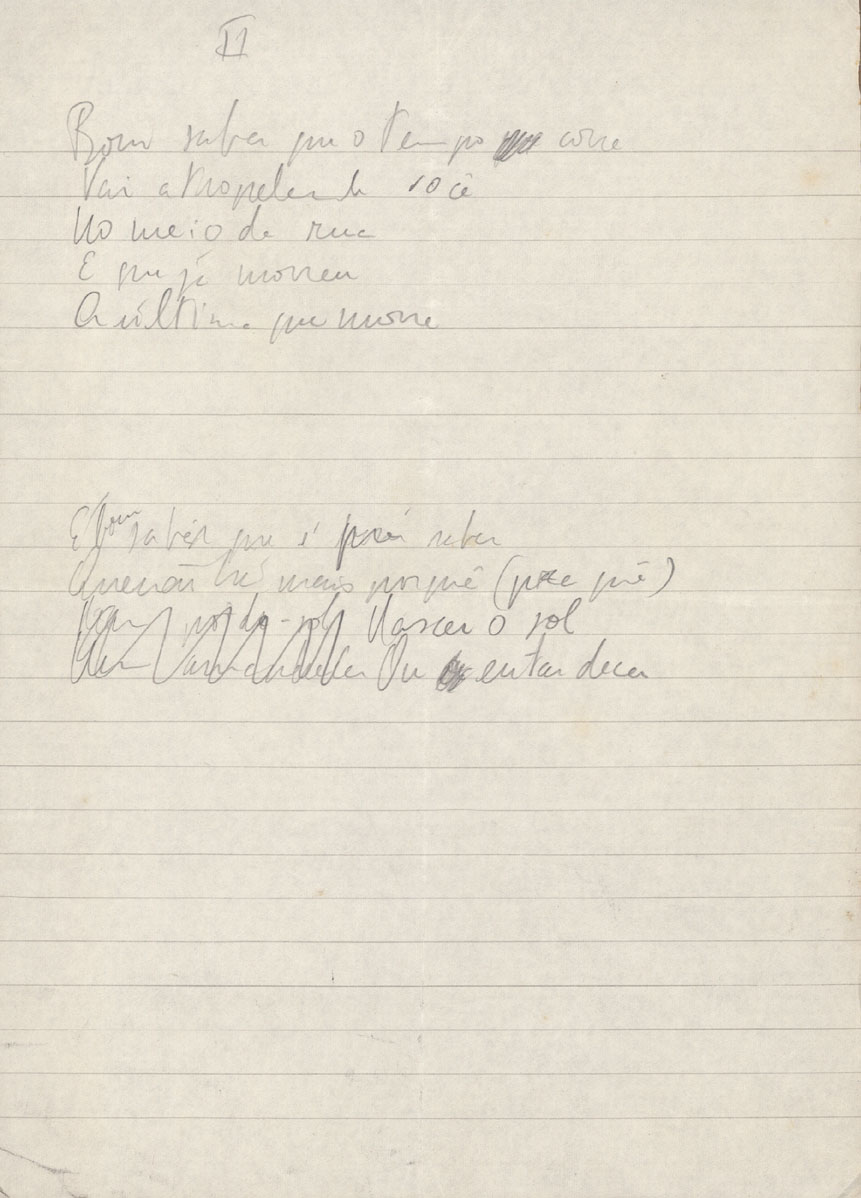 II
Bom saber que o tempo corre
Vai atropelando você
No meio da rua
E que já morreu
A última que morre
E bom saber que é saber
Que não há mais porquê (pra quê)
Nascer o sol
Ou entardecer